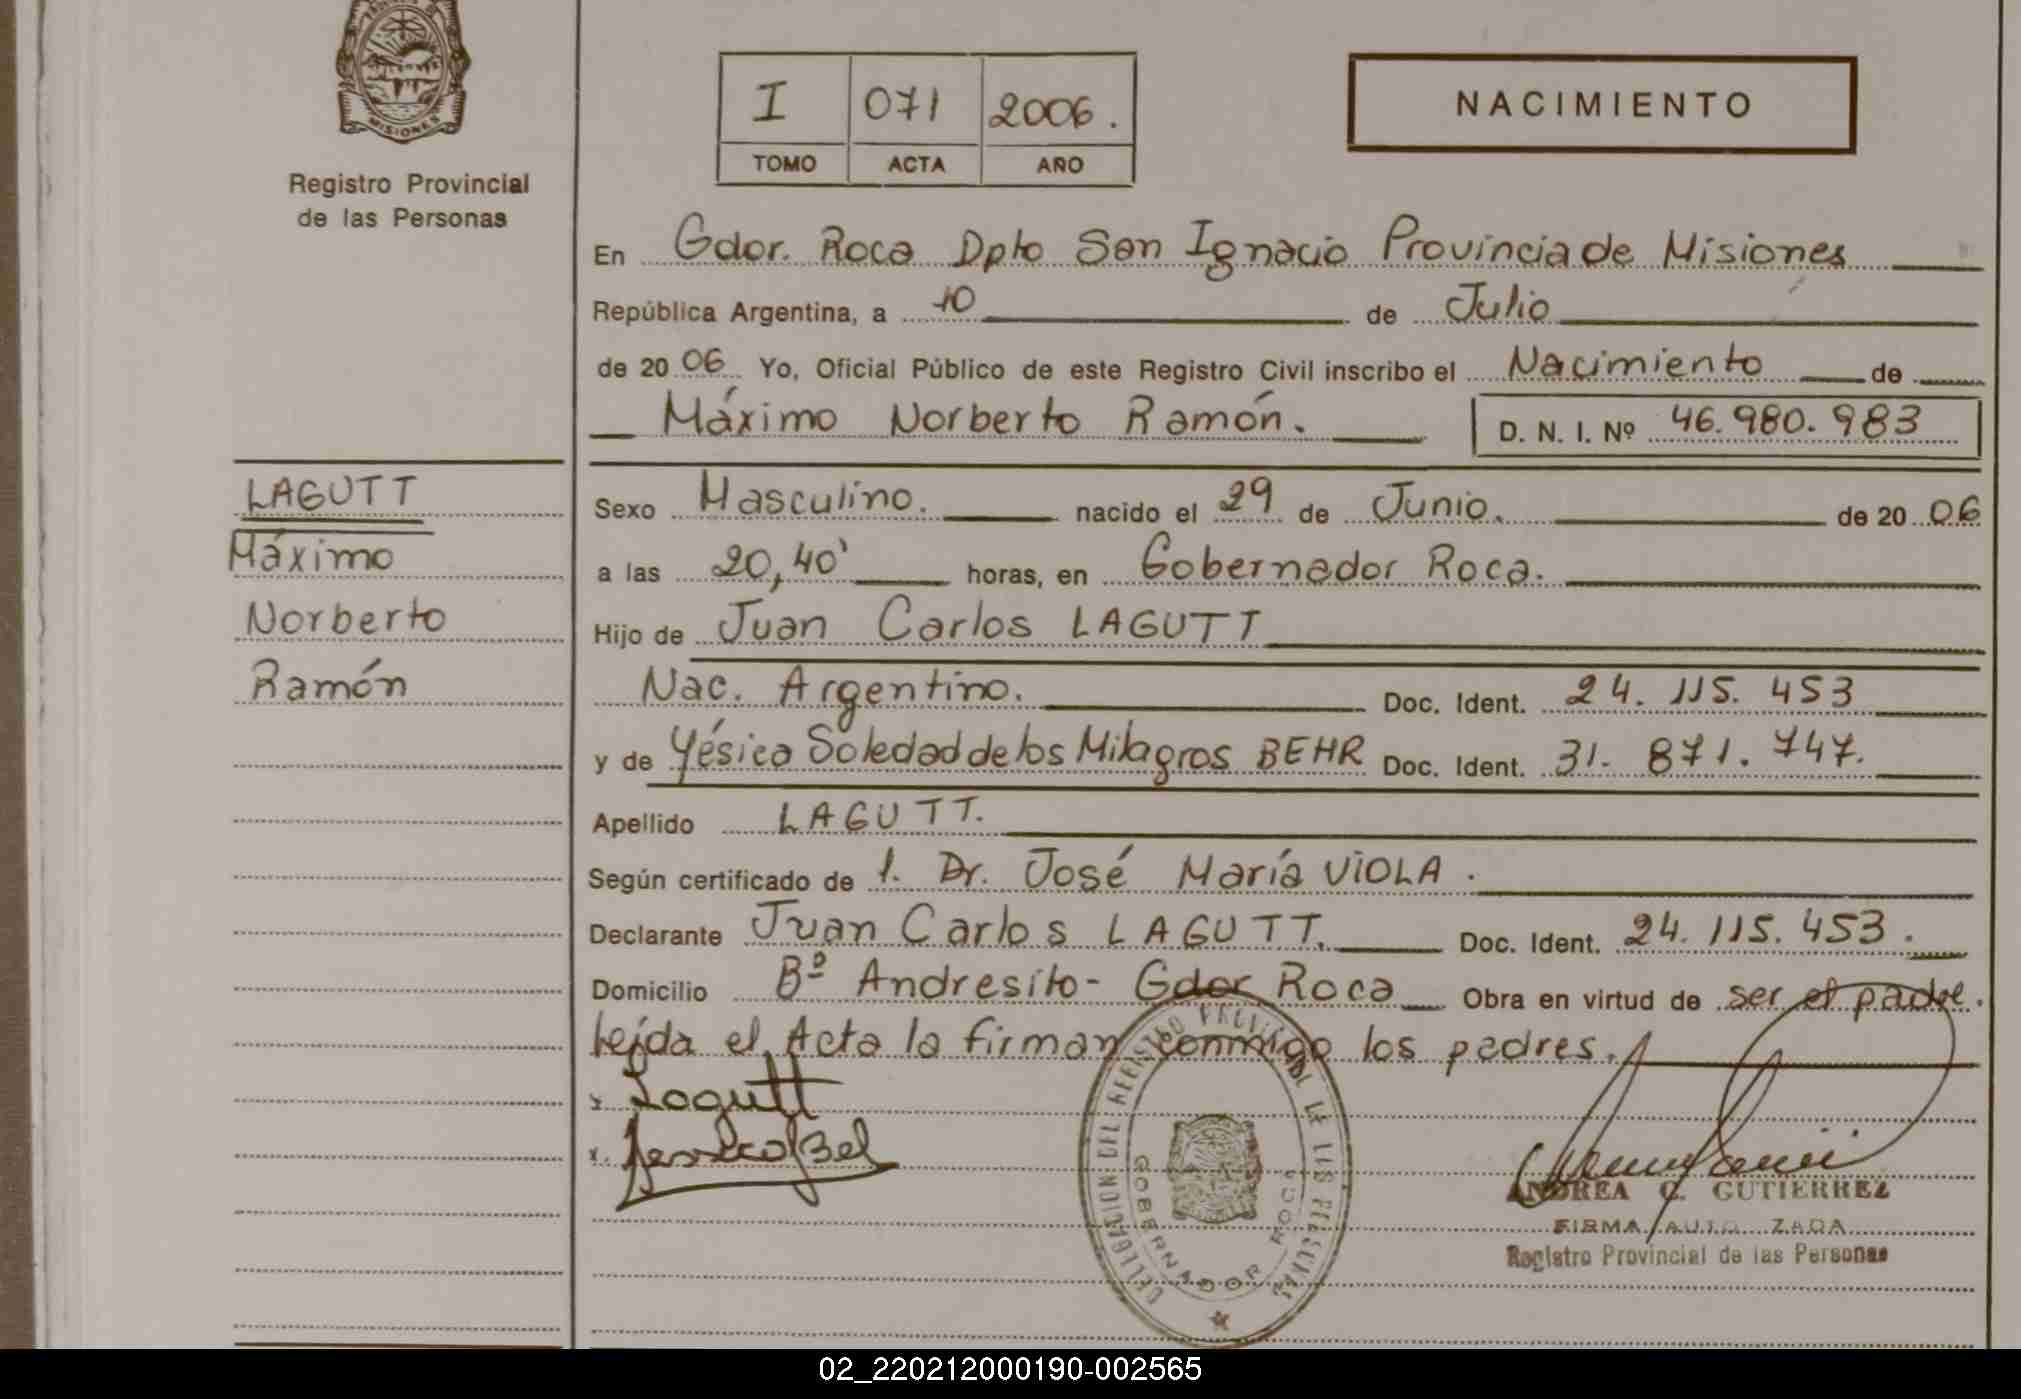 MISIONES
Registro Provincial
de las Personas
I 071 2006.
TOMO ACTA AÑO
NACIMIENTO
En Gdor. Roca Dpto San Ignacio Provincia de Misiones
República Argentina, a 10 de Julio
de 2006 Yo, Oficial Público de este Registro Civil inscribo el Nacimiento de
Máximo Norberto Ramón. D. N. I. Nº 46.980.983
LAGUTT
Máximo
Norberto
Ramón
Sexo Masculino. nacido el 29 de Junio. de 2006
a las 20,40' horas, en Gobernador Roca.
Hijo de Juan Carlos LAGUTT
Nac. Argentino. Doc. Ident. 24.115.453
y de Yésica Soledad de los Milagros BEHR Doc. Ident. 31.871.747.
Apellido LAGUTT.
Según certificado de 1. Dr. José María VIOLA.
Declarante Juan Carlos LAGUTT. Doc. Ident. 24.115.453.
Domicilio Bº Andresito - Gdor Roca Obra en virtud de ser el padre.
Leída el Acta la firman conmigo los padres.
x Lagutt
x
DELEGACION DEL REGISTRO PROVINCIAL DE LAS PERSONAS
GOBERNADOR ROCA
ANDREA C. GUTIERREZ
FIRMA AUTO ZADA
Registro Provincial de las Personas
02_220212000190-002565